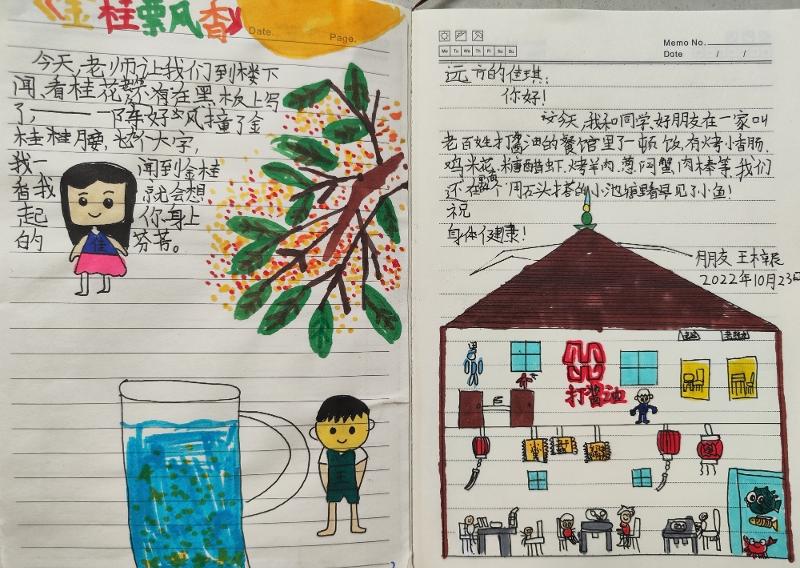 《金桂飘香》
Date.
Page.
今天,老师让我们到楼下
闻,看桂花,还有在黑板上写
了,——一阵好
风撞了金
桂桂腰,这个大字,
我一
闻到金桂
看我
就会想
起
你身上
的
芬芳。
佳
王
Mo Tu We Th Fr Sa Su
Memo No.
Date / /
远方的佳琪:
你好!
这今天,我和同学、好朋友在一家叫
老百姓打酱油的餐馆里了一顿饭,有烤小香肠、
鸡米花、糖醋虾、烤羊肉、葱
蟹肉棒等,我们
还在
一个用石头搭的小池塘里
看见了小鱼!
祝
身体健康!
朋友 王梓辰
2022年10月23日
打酱油